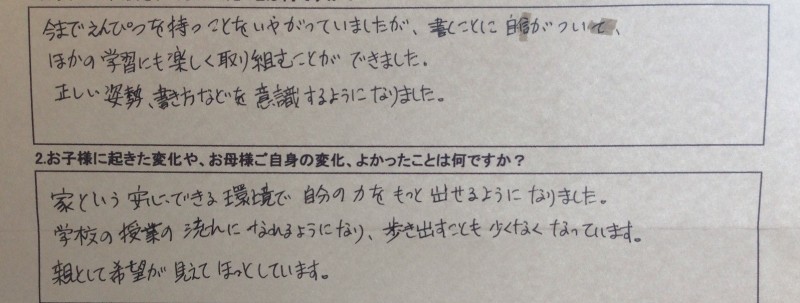 今までえんぴつを持つことをいやがっていましたが、書くことに自信がついて、
ほかの学習にも楽しく取り組むことができました。
正しい姿勢、書き方などを意識するようになりました。
2.お子様に起きた変化や、お母様ご自身の変化、よかったことは何ですか？
家という安心できる環境で自分の力をもっと出せるようになりました。
学校の授業の流れになれるようになり、歩き出すことも少くなくなっています。
親として希望が見えてほっとしています。